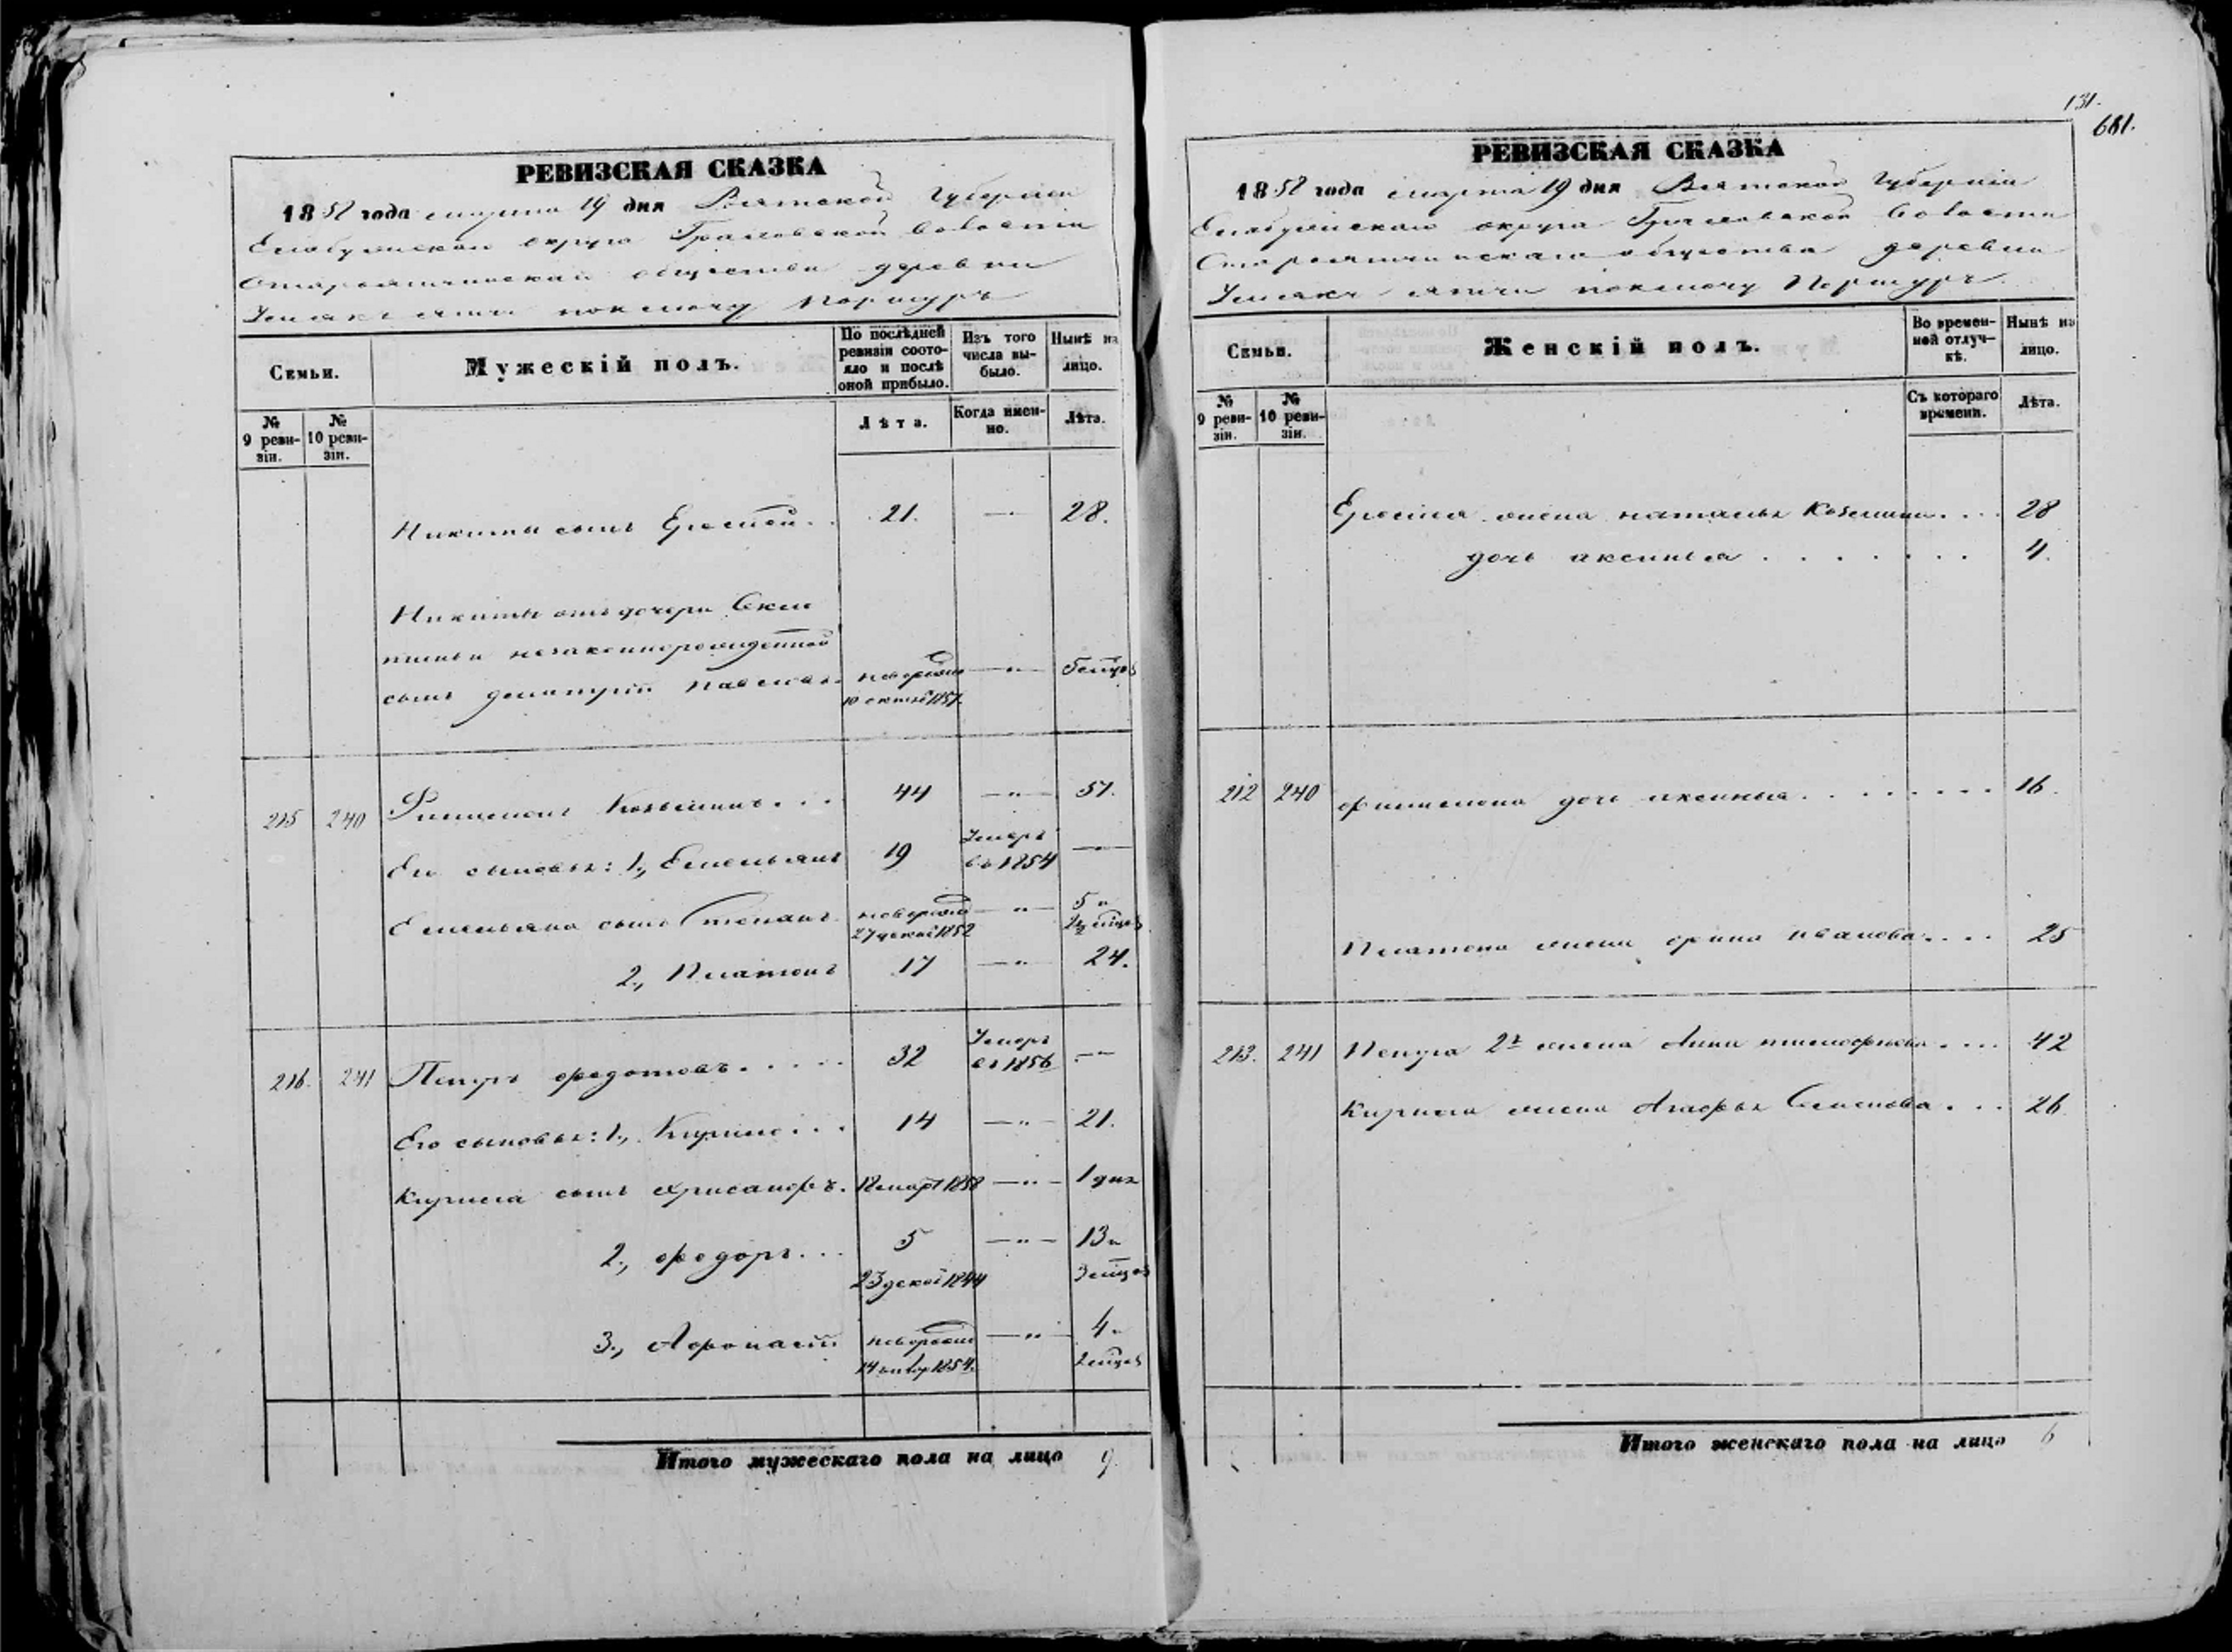 131.
681.
РЕВИЗСКАЯ СКАЗКА
1858 года марта 19 дня Вятской Губерніи
Елабужскаго округа Граховской Волости
общества деревни
Поршуръ
Семьи.
Мужескій полъ.
По послѣдней ревизіи состояло и послѣ оной прибыло.
Изъ того числа выбыло.
Нынѣ на лицо.
№ 9 ревизіи.
№ 10 ревизіи.
Лѣта.
Когда именно.
Лѣта.
Никиты сынъ Ермей . . 21. —"— 28.
Никиты отъ дочери
незаконнорожденной
сынъ Дмитрій Павловъ. новорожд —"—
10 1857.
215 240 Филимонъ Козьминъ . . . 44 —"— 51.
Его сыновья: 1., Емельянъ 19 Умеръ въ 1854 —"—
Емельяна сынъ Степанъ новорожд —"— 5 и
27 декаб 1852 2½ мѣсяц
2., Платонъ 17 —"— 24.
216. 241 Петръ Федотовъ . . . . . 32 Умеръ въ 1856 —"—
Его сыновья: 1., Кирило . . . 14 —"— 21.
Кирила сынъ Хрисанфъ. 18 март 1858 —"— 1 дня
2., Федоръ . . . 5 —"— 13 и
23 декаб 1844 3 мѣсяц
3., Афонасій новорожд —"— 4 и
14 1854. 2 мѣсяц
Итого мужескаго пола на лицо 9.
РЕВИЗСКАЯ СКАЗКА
1858 года марта 19 дня Вятской Губерніи
Елабужскаго округа Граховской Волости
общества деревни
Поршуръ
Семьи.
Женскій полъ.
Во временной отлучкѣ.
Нынѣ на лицо.
№ 9 ревизіи.
№ 10 ревизіи.
Съ котораго времени.
Лѣта.
Ермея жена Наталья Козьмина . . . 28
дочь Аксинья . . . . . . . 4.
212 240 Филимона дочь Аксинья . . . . . . . . 16.
Платона жена Орина Иванова . . . . 25
213. 241 Петра 2я жена Анна Тимофеева . . . . 42
Кирила жена Агафья Семенова . . . 26.
Итого женскаго пола на лицо 6